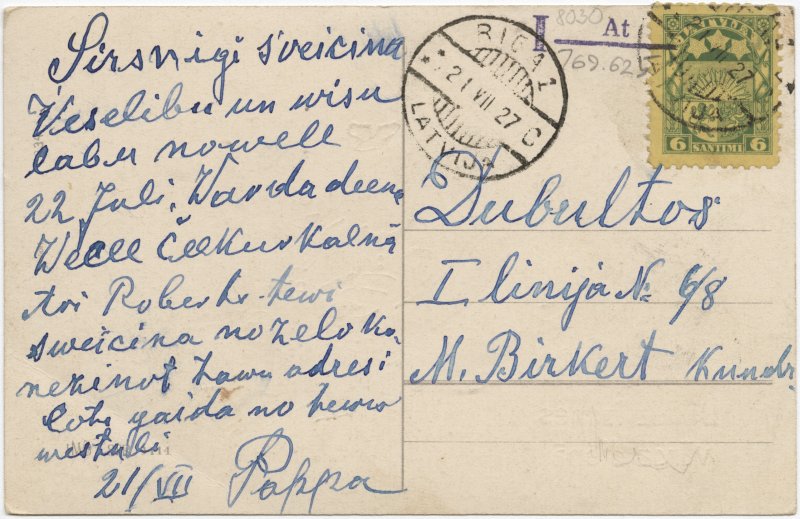 Sirsnigi sveicina
Veselibu un wisu
labu nowell
22 Juli, Warda deena
Weell Čeekurkalnā
Ari Roberts tewi
sweicina noželoka,
nezinot tawu adresi
loti gaida no tewim
westuli
21/VII Pappa
RIGA 1
21 VIII 27 C
LATVIJA
I At
8030
769.625
LATVIJA
6 SANTIMI 6
Dubultos
I linija № 6/8
M. Birkert Kundr.